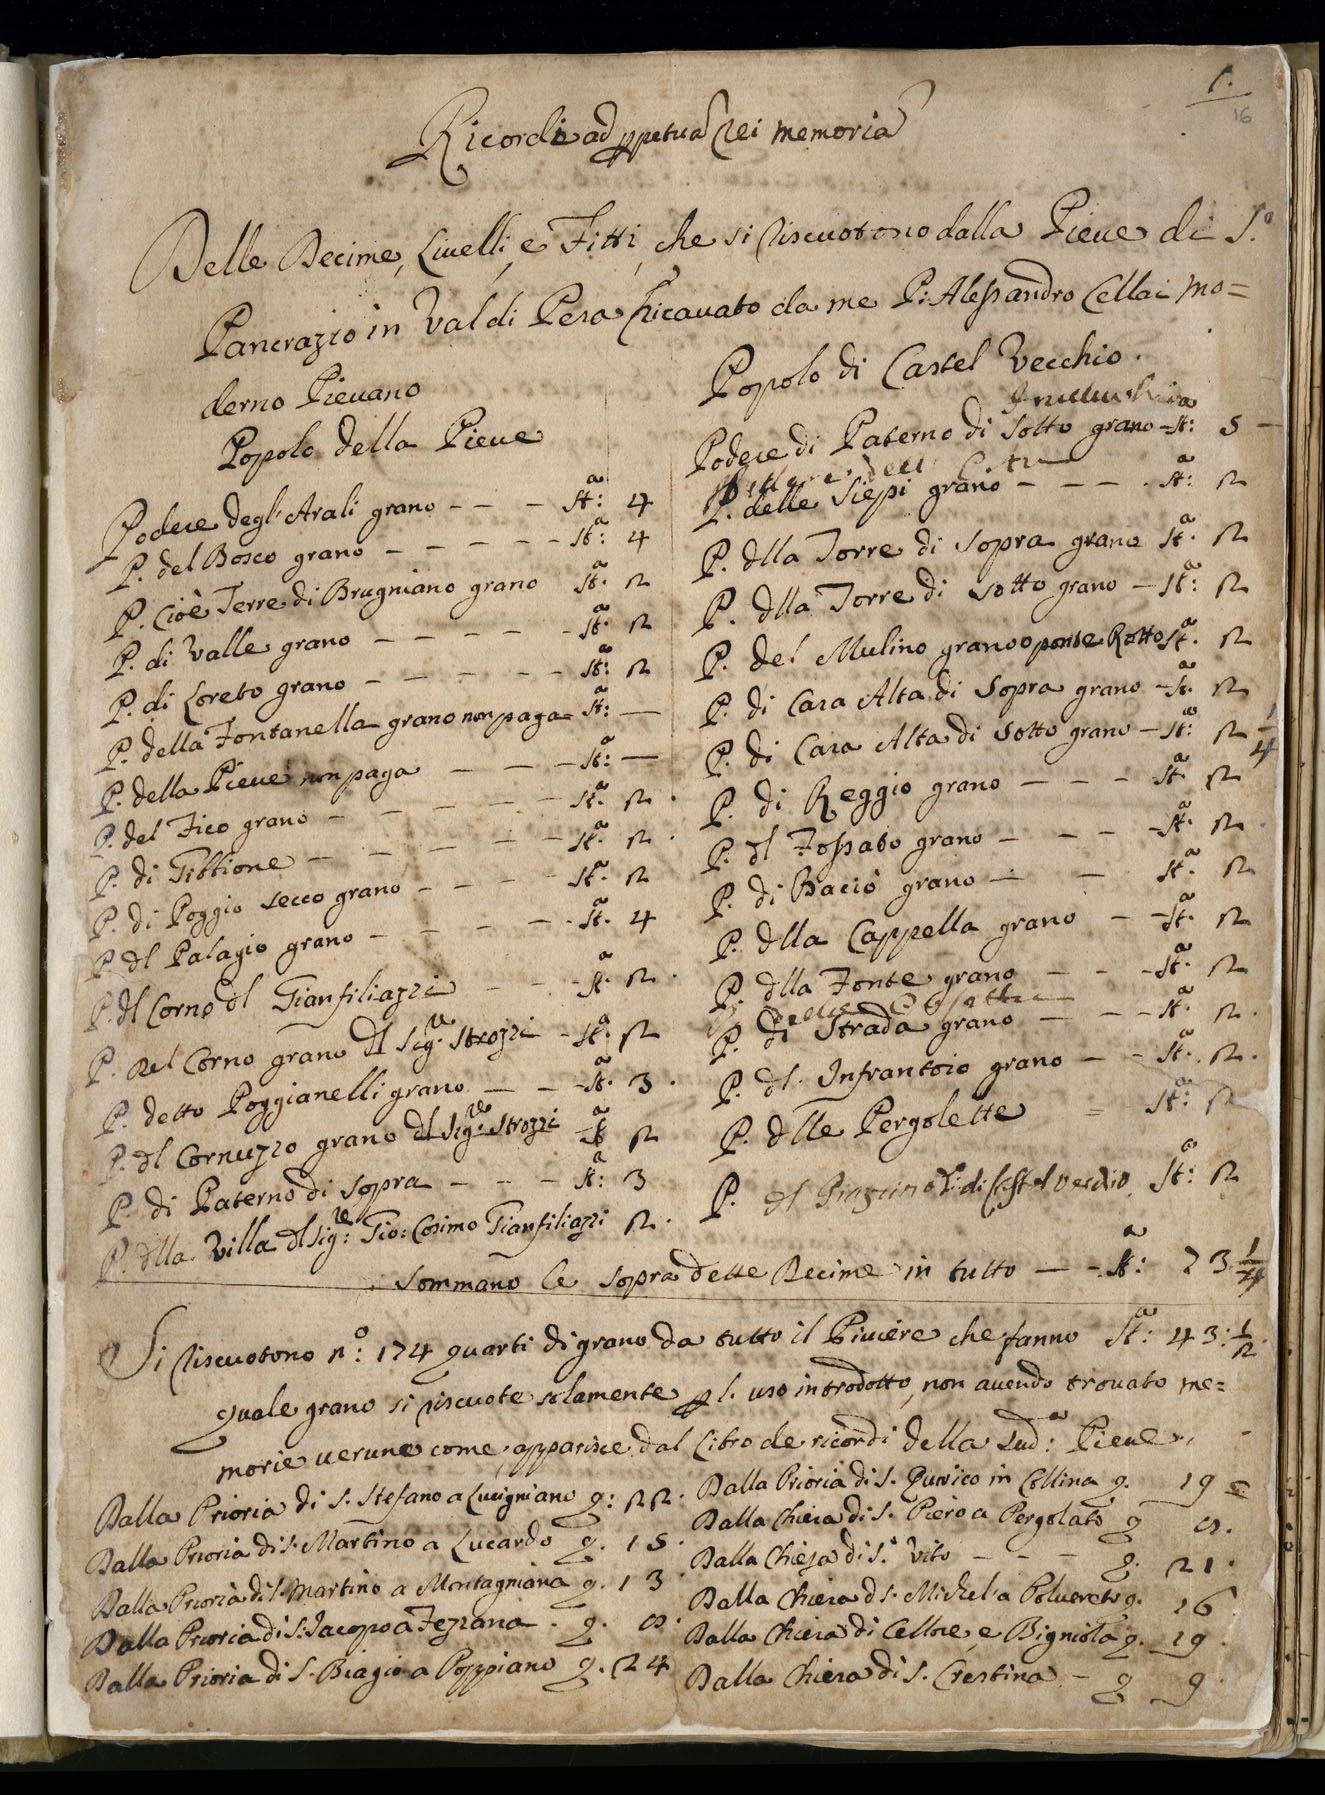 1.
16
Ricordi ad ppetua rei memoria
Delle Decime, Livelli, e Fitti, che si riscuotono dalla Pieve di S.º
Pancrazio in Val di Pesa Ricavato da me P: Alessandro Cellai mo=
derno Pievano
Popolo della Pieve
Podere degl'Arali grano - - - Stª: 4
P. del Bosco grano - - - - - Stª: 4
P. Cioè Terre di Brugniano grano Stª: 2
P. di Valle grano - - - - - Stª: 2
P. di Loreto grano - - - - - Stª: 2
P. della Fontanella grano non paga Stª: —
P. della Pieve non paga - - - Stª: —
P. del Fico grano - - - - - Stª. 2.
P. di Tittione - - - - - Stª. 2.
P. di Poggio secco grano - - - - Stª. 2
P. dl Palagio grano - - - - - Stª. 4
P. dl Corno dl Gianfiliazzi - - - Stª. 2.
P. del Corno grano dl Sig:re Strozzi - Stª. 2
P. detto Poggianelli grano - - - Stª. 3.
P. dl Cornuzzo grano dl Sig:re Strozzi Stª 2
P. di Paterno di Sopra - - - - Stª: 3
P. dlla Villa dl Sig:re Gio: Cosimo Gianfiliazzi 2.
Popolo di Castel Vecchio.
Podere di Paterno di Sotto grano Stª: 5 -
P. delle Siepi grano - - - - Stª: 2
P. dlla Torre di Sopra grano Stª. 2
P. dlla Torre di Sotto grano - Stª: 2
P. del Mulino grano o ponte Rotto Stª. 2
P. di Casa Alta di Sopra grano - Stª. 2
P. di Casa Alta di Sotto grano - Stª: 2 1/4
P. di Reggio grano - - - Stª. 2
P. dl Fossato grano - - - - Stª. 2.
P. di Bacio grano - - Stª. 2
P. dlla Cappella grano - - Stª. 2
P. dlla Fonte grano - - - Stª. 2
P. di Strada grano - - - Stª. 2.
P. dl. Infrantoio grano - - Stª. 2.
P. dlle Pergolette = Stª: 2
P. dl di Castel vecchio Stª: 2
Sommano le sopra dette Decime in tutto - - Stª: 73 1/4
Si riscuotono nº: 174 quarti di grano da tutto il Piviere che fanno Stª: 43: 1/2.
quale grano si riscuote solamente p l. uso introdotto, non avendo trovato me=
morie verune come apparisce dal Libro de ricordi della Sudª: Pieve.
Dalla Prioria di S. Stefano a Lucigniano q: 22.
Dalla Prioria di S. Martino a Lucardo q. 15.
Dalla Prioria di S. Martino a Montagniana q. 13
Dalla Prioria di S: Jacopo a Fezzana. q. 8.
Dalla Prioria di S. Biagio a Poppiano q. 24
Dalla Prioria di S. Quirico in Collina q. 19
Dalla Chiesa di S. Piero a Pergolato q 8.
Dalla Chiesa di S.º Vito - - - q. 21.
Dalla Chiesa di S. Michel'a Polvereto q. 16
Dalla Chiesa di Cellole, e Bigniola q. 19.
Dalla Chiesa di S. Crestina - q 9